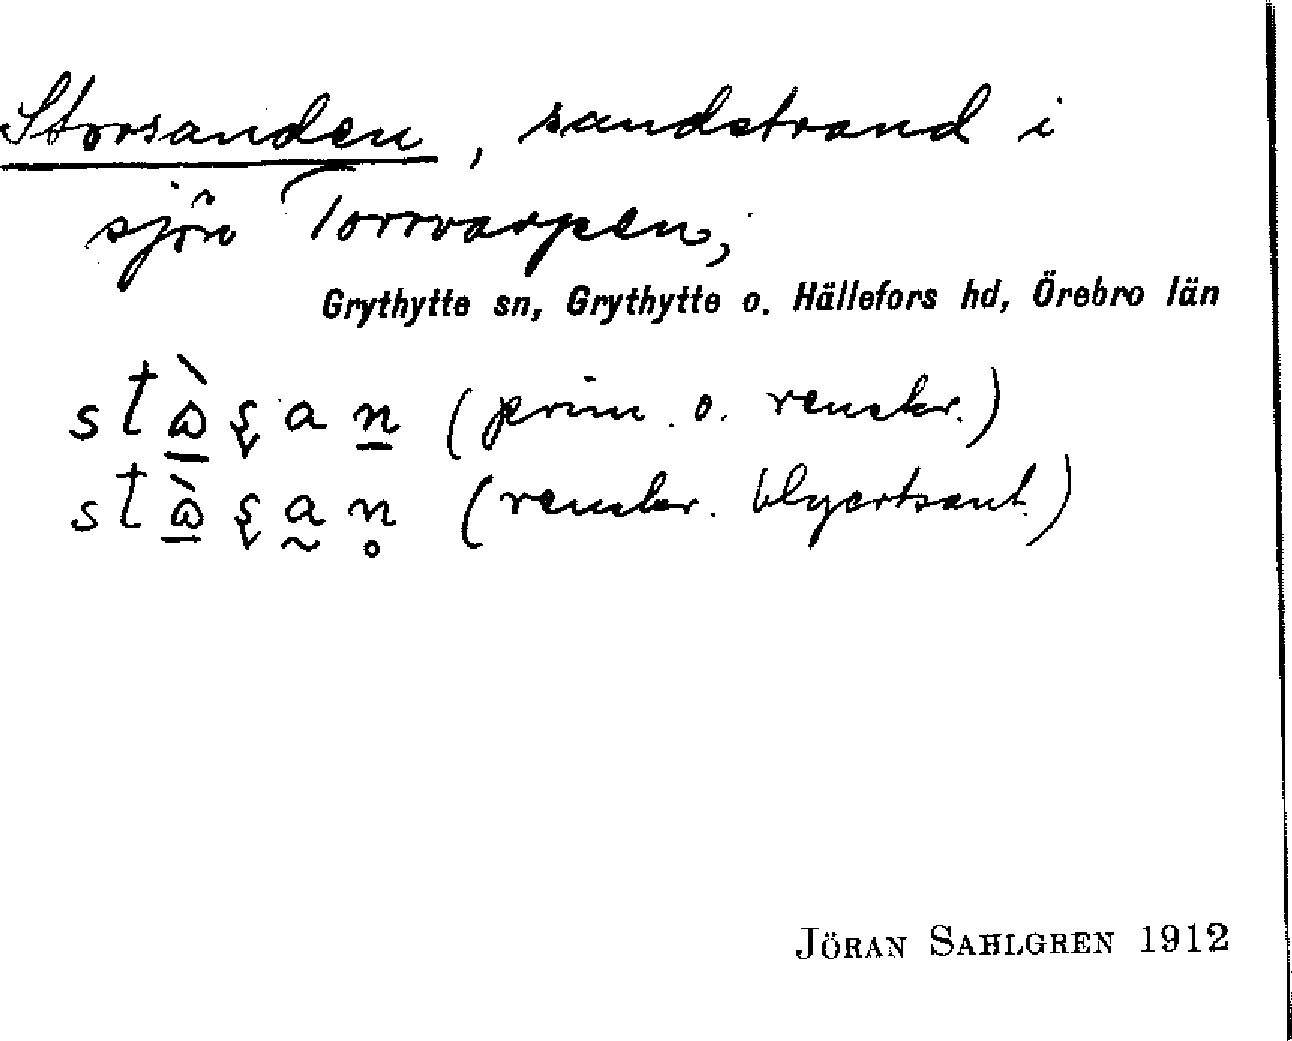 Storsanden, sandstrand i
sjön Torrvarpen,
Grythytte sn, Grythytte o. Hällefors hd, Örebro län
(prim. o. renskr.)
(renskr. blyertsant.)
JÖRAN SAHLGREN 1912